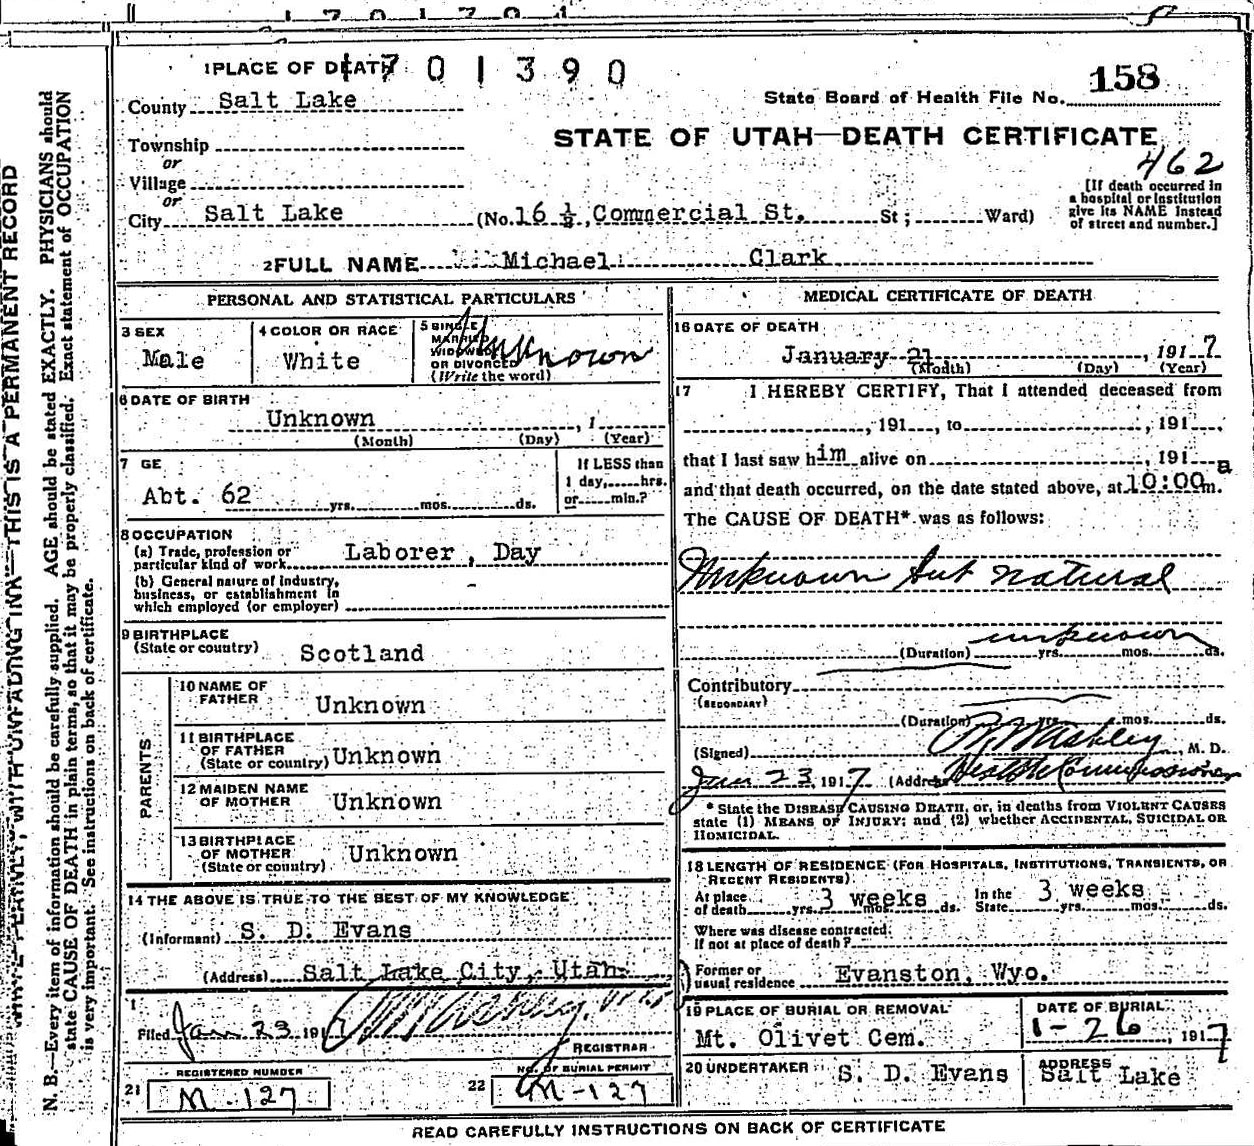 1 PLACE OF DEATH 1 7 0 1 3 9 0
158
County Salt Lake
State Board of Health File No.
STATE OF UTAH—DEATH CERTIFICATE
Township
or
Village
or
462
[If death occurred in
a hospital or institution
give its NAME instead
of street and number.]
City Salt Lake (No. 16 ½ Commercial St. St; Ward)
2 FULL NAME Michael Clark
PERSONAL AND STATISTICAL PARTICULARS
3 SEX
Male
4 COLOR OR RACE
White
5 SINGLE
MARRIED
WIDOWED
OR DIVORCED
(Write the word)
Unknown
6 DATE OF BIRTH
Unknown , 1
(Month) (Day) (Year)
7 GE
Abt. 62 yrs. mos. ds.
If LESS than
1 day, hrs.
or min.?
8 OCCUPATION
(a) Trade, profession or
particular kind of work Laborer, Day
(b) General nature of industry,
business, or establishment in
which employed (or employer)
9 BIRTHPLACE
(State or country) Scotland
PARENTS
10 NAME OF
FATHER Unknown
11 BIRTHPLACE
OF FATHER
(State or country) Unknown
12 MAIDEN NAME
OF MOTHER Unknown
13 BIRTHPLACE
OF MOTHER
(State or country) Unknown
14 THE ABOVE IS TRUE TO THE BEST OF MY KNOWLEDGE
(Informant) S. D. Evans
(Address) Salt Lake City, Utah.
Filed Jan 23 1917
REGISTRAR
REGISTERED NUMBER
21 M-127
NO. OF BURIAL PERMIT
22 M-127
MEDICAL CERTIFICATE OF DEATH
16 DATE OF DEATH
January 21 , 1917
(Month) (Day) (Year)
17 I HEREBY CERTIFY, That I attended deceased from
, 191 , to , 191 ,
that I last saw him alive on , 191
and that death occurred, on the date stated above, at 10:00 a m.
The CAUSE OF DEATH* was as follows:
Unknown but natural
unknown
(Duration) yrs. mos. ds.
Contributory
(SECONDARY)
(Duration) yrs. mos. ds.
(Signed) , M. D.
Jan 23 1917 (Address) Health Commissioner
* State the DISEASE CAUSING DEATH, or, in deaths from VIOLENT CAUSES
state (1) MEANS OF INJURY; and (2) whether ACCIDENTAL, SUICIDAL OR
HOMICIDAL.
18 LENGTH OF RESIDENCE (FOR HOSPITALS, INSTITUTIONS, TRANSIENTS, OR
RECENT RESIDENTS)
At place
of death yrs. 3 weeks mos. ds. In the
State 3 weeks yrs. mos. ds.
Where was disease contracted
If not at place of death?
Former or
usual residence Evanston, Wyo.
19 PLACE OF BURIAL OR REMOVAL
Mt. Olivet Cem.
DATE OF BURIAL
1-26 , 1917
20 UNDERTAKER S. D. Evans
ADDRESS
Salt Lake
READ CAREFULLY INSTRUCTIONS ON BACK OF CERTIFICATE
WRITE PLAINLY, WITH UNFADING INK—THIS IS A PERMANENT RECORD
N. B.—Every item of information should be carefully supplied. AGE should be stated EXACTLY. PHYSICIANS should
state CAUSE OF DEATH in plain terms, so that it may be properly classified. Exact statement of OCCUPATION
is very important. See instructions on back of certificate.